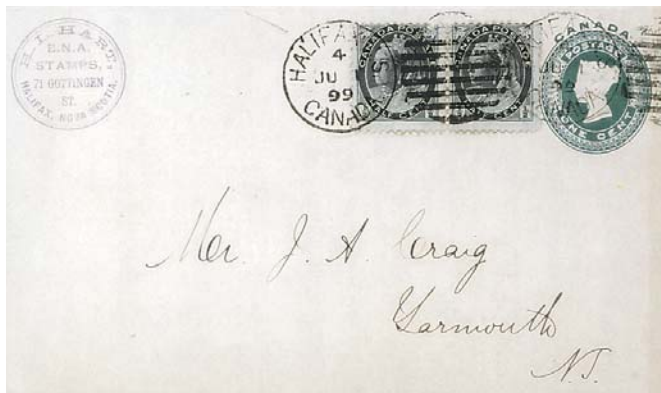 H. L. HART,
B.N.A.
STAMPS,
71 GOTTINGEN
ST.
HALIFAX, NOVA SCOTIA.
HALIFAX
4
JU
99
CANADA
CANADA POSTAGE
HALF CENT
CANADA POSTAGE
HALF CENT
CANADA
POSTAGE
ONE CENT
Mr. J. A. Craig
Yarmouth
N.S.